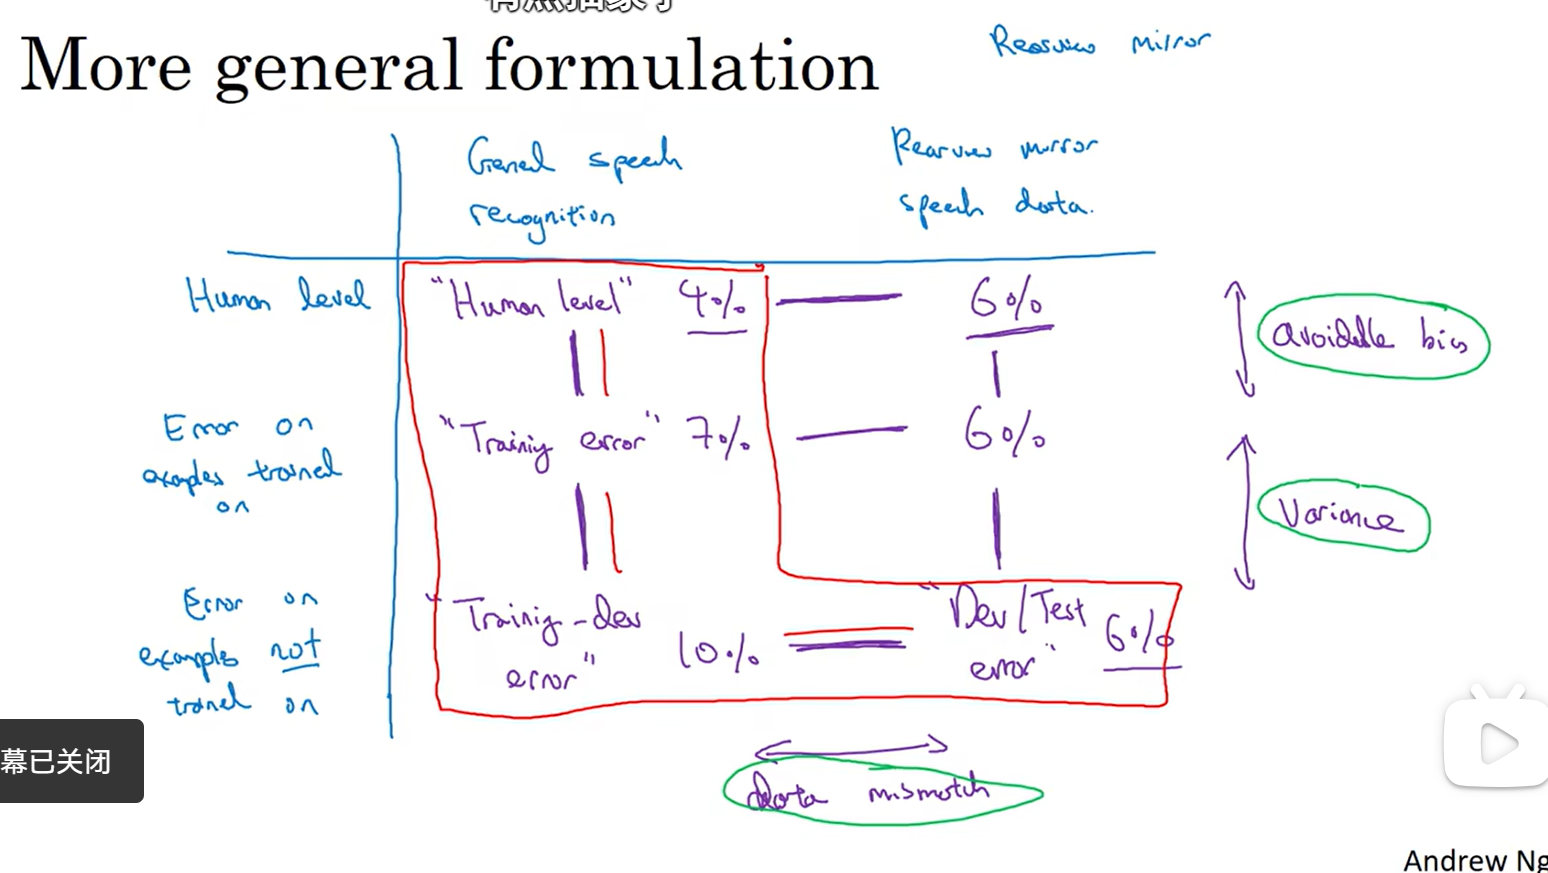 More general formulation
Rearview mirror
General speech
recognition
Rearview mirror
speech data.
Human level
"Human level" 4%
6%
avoidable bias
Error on
examples trained
on
"Training error" 7%
6%
Variance
Error on
examples not
trained on
"Training-dev
error"
10%
"Dev/Test
error"
6%
data mismatch
幕已关闭
Andrew Ng